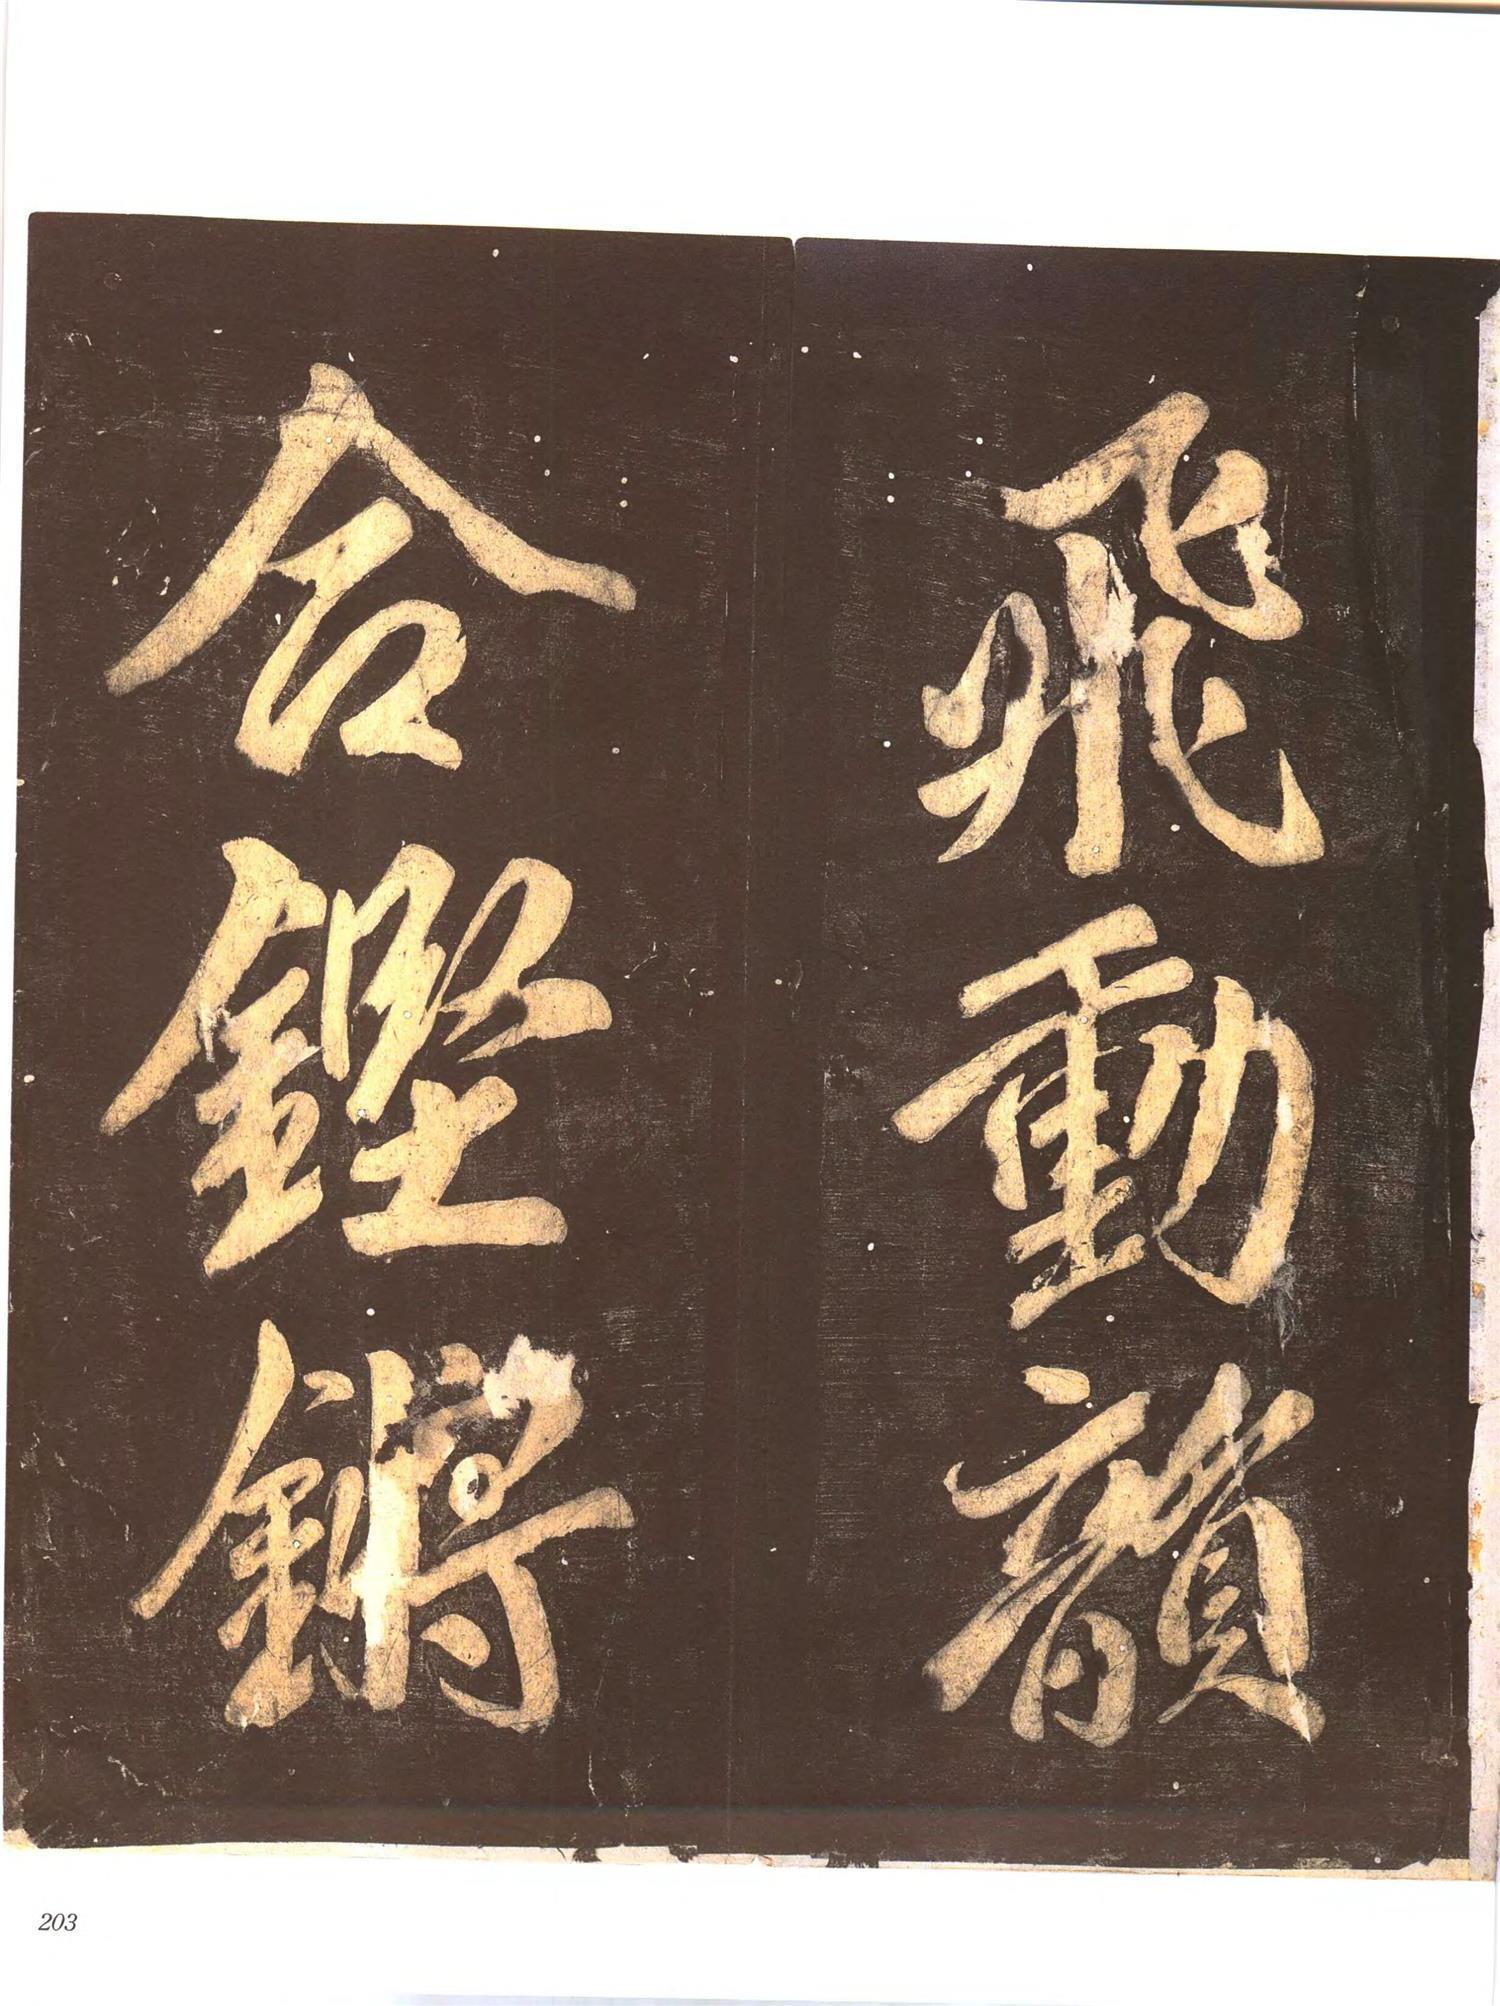 飛動韻
合鏗鏘
203